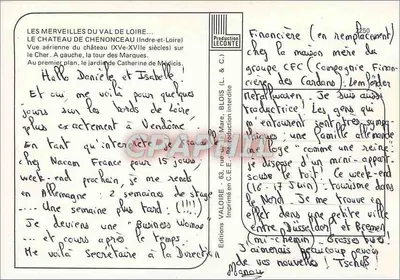 LES MERVEILLES DU VAL DE LOIRE...
LE CHATEAU DE CHENONCEAU (Indre-et-Loire)
Vue aérienne du château (XVe-XVIIe siècles) sur
le Cher. A gauche, la tour des Marques.
Au premier plan, le jardin de Catherine de Médicis.
Hallo Danièle et Isabelle!
Et oui me voilà pour quelques
jours sur les bords de Loire,
plus exactement à Vendôme.
En tant qu'interprète de stage
chez Nacam France pour 15 jours,
week-end prochain je me rends
en Allemagne: 2 semaines de stage
... Une semaine plus tard. (!!!)
Je deviens une "Business Woman"
et cours après le temps.
Me voilà Secrétaire à la Direction
Production
LECONTE
Editions VALOIRE, 63, rue Mare, BLOIS (L. & C.)
Imprimé en C.E.E. - Reproduction interdite
Financière (en remplacement)
chez la maison mère du
groupe CFC (Compagnie Finan-
cière des Cardans),
Je suis aussi
traductrice! Les gens qui
m'entourent sont très sympa-
thiques: une famille allemande
comme une reine
je dispose d'un mini-appart-
sous le toit! Ce week-end
(16-17 Juin): tourisme dans
le Nord. Je me trouve en
effet dans une petite ville
entre Düsseldorf et Bremen
(mi-chemin). Grosses bises!
J'aimerais beaucoup
de vos nouvelles! Tschüß